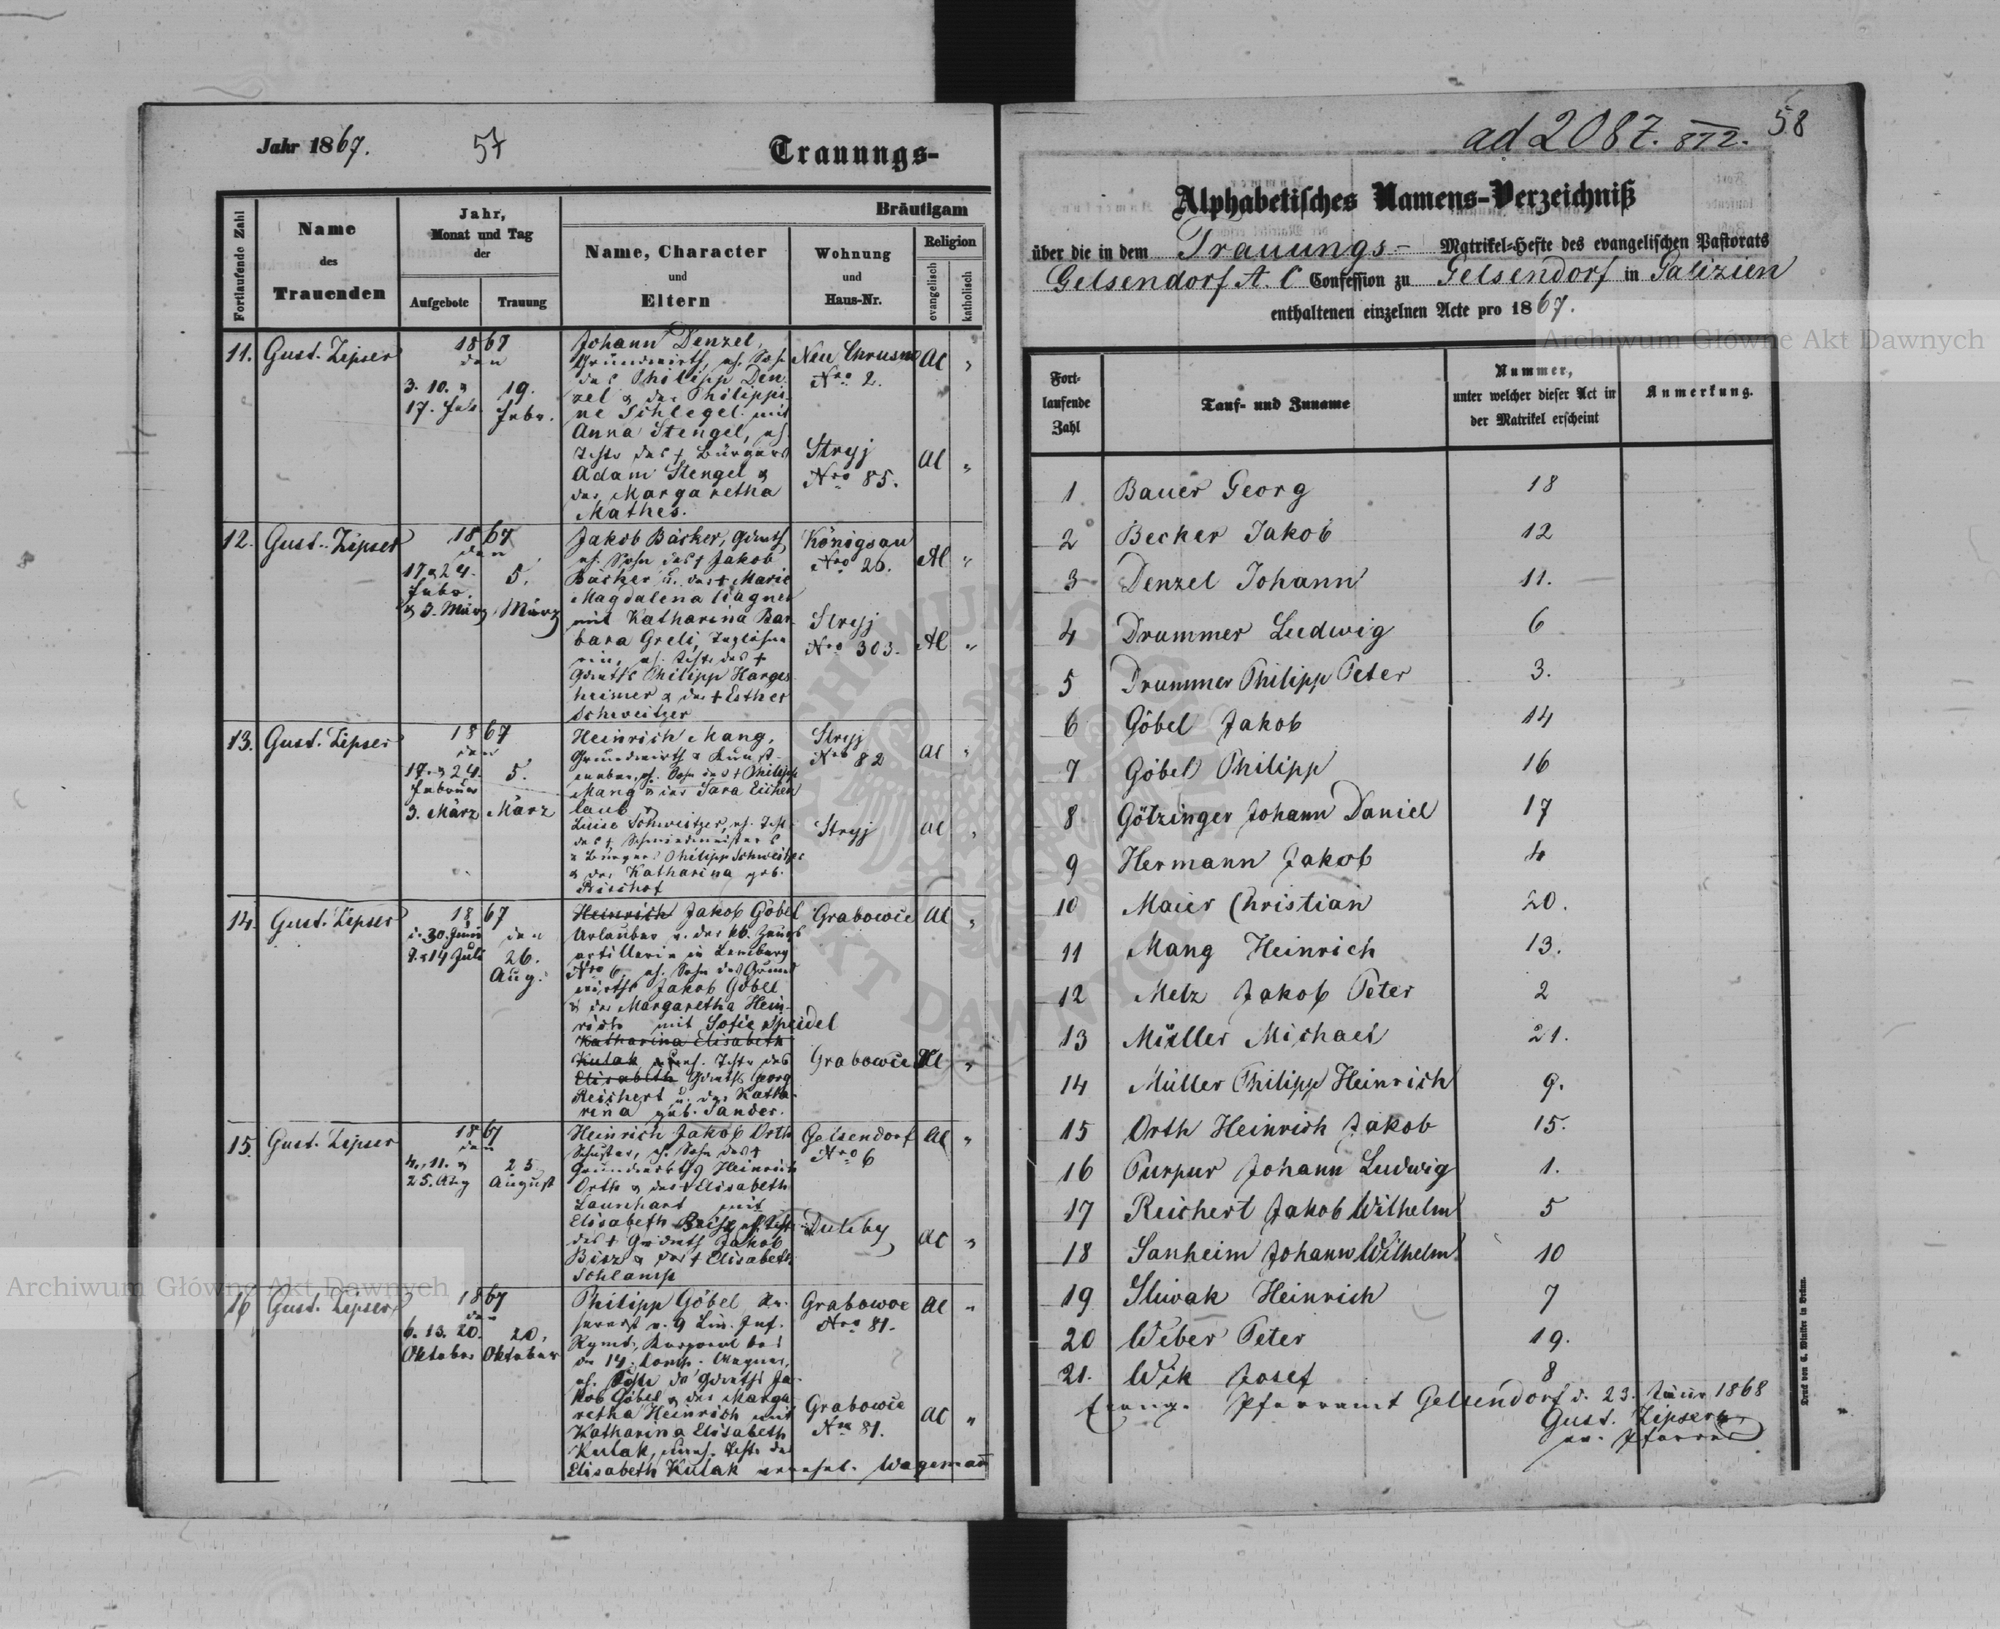 Jahr 1867.
57
Trauungs-
Fortlaufende Zahl
Name
des
Trauenden
Jahr,
Monat und Tag
der
Aufgebote
Trauung
Bräutigam
Name, Character
und
Eltern
Wohnung
und
Haus-Nr.
Religion
evangelisch
katholisch
11. Gust. Zipser
1867
den
3. 10. &
17. Feb.
19.
Febr.
Johann Denzel,
Grundwirth, eh. Sohn
des Philipp Den-
zel & der Philippi-
ne Schlegel mit
Anna Stengel, eh.
Tochter des † Bürgers
Adam Stengel &
der Margaretha
Mathes.
Neu Chrusno
Nro 2.
AC "
Stryj
Nro 85.
AC "
12. Gust. Zipser
1867
den
17 & 24.
Febr.
& 3. März
5.
März
Jakob Bäcker, Gdwirth
eh. Sohn des † Jakob
Bäcker u. der † Marie
Magdalena Wagner
mit Katharina Bar-
bara Greli, Taglöhne-
rin, eh. Tochter des †
Gdwirths Philipp Harges-
heimer & der † Esther
Schweitzer
Königsau
Nro 26.
AC "
Stryj
Nro 303.
AC "
13. Gust. Zipser
1867
den
17. & 24.
Februar
3. März
5.
März
Heinrich Mang,
Grundwirth &
eh. Sohn des † Philipp
Mang & der Sara Eichen
laub &
Luise Schweitzer, eh. Tocht.
des † Schmiedmeisters
& Bürgers Philipp Schweitzer
& der Katharina geb.
Bischof
Stryj
Nro 82
AC "
Stryj
AC "
14. Gust. Zipser
1867
den
30. Juni
7. & 14 Juli
26.
Aug.
Heinrich Jakob Göbel
Urlauber v. der kk. Zeugs
artillerie in Lemberg
Nro 6, eh. Sohn des Grund
wirths Jakob Göbel
& der Margaretha Hein-
rich mit Sofie Speidel
Katharina Elisabeth
Kulak uneh. Tochter des
Elisabeth Gdwirths Georg
Reichert u. der Katha-
rina geb. Sander.
Grabowce
AC "
Grabowce
AC "
15. Gust. Zipser
1867
den
4., 11. &
25. Aug
25
August
Heinrich Jakob Orth
Schuster, eh. Sohn des †
Grundwirths Heinrich
Orth & der † Elisabeth
Launhart mit
Elisabeth Bisz eh. Tocht.
des † Gdwirth Jakob
Bisz & der † Elisabeth
Schlamp
Gelsendorf
Nro 6
AC "
Duliby
AC "
16 Gust. Zipser
1867
den
6. 13. 20.
Oktober
20.
Oktober
Philipp Göbel,
v. 9 Lin. Inf.
Rgmt., Korporal bei
der 14. Comp.
eh. Sohn des Gdwirths Ja-
kob Göbel & der Marga-
retha Heinrich mit
Katharina Elisabeth
Kulak, uneh. Tocht. der
Elisabeth Kulak verehel. Wagemann
Grabowce
Nro 81.
AC "
Grabowce
Nro 81.
AC "
58
ad 2087. 872.
Alphabetisches Namens-Verzeichniß
über die in dem Trauungs- Matrikel-Hefte des evangelischen Pastorats
Gelsendorf A. C Confession zu Gelsendorf in Galizien
enthaltenen einzelnen Acte pro 1867.
Fort-
laufende
Zahl
Tauf- und Zuname
Nummer,
unter welcher dieser Act in
der Matrikel erscheint
Anmerkung.
1 Bauer Georg 18
2 Becker Jakob 12
3 Denzel Johann 11.
4 Drummer Ludwig 6
5 Drummer Philipp Peter 3.
6 Göbel Jakob 14
7 Göbel Philipp 16
8 Götzinger Johann Daniel 17
9 Hermann Jakob 4
10 Maier Christian 20.
11 Mang Heinrich 13.
12 Metz Jakob Peter 2
13 Müller Michael 21.
14 Müller Philipp Heinrich 9.
15 Orth Heinrich Jakob 15.
16 Purpur Johann Ludwig 1.
17 Reichert Jakob Wilhelm 5
18 Sanheim Johann Wilhelm 10
19 Sliwak Heinrich 7
20 Weber Peter 19.
21. Wik Josef 8
Evang. Pfarramt Gelsendorf d. 23. Jänner 1868
Gust. Zipser
ev. Pfarrer
Druck von C. Winiker in Brünn.
Archiwum Główne Akt Dawnych
Archiwum Główne Akt Dawnych
ARCHIWUM GŁÓWNE AKT DAWNYCH